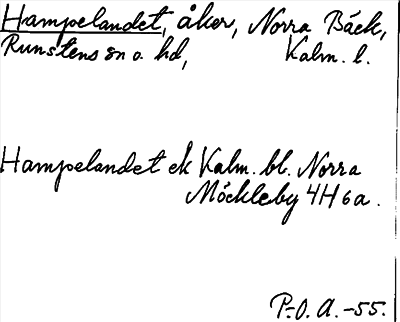 Hampelandet, åker, Norra Bäck,
Runstens sn o. hd, Kalm. l.
Hampelandet ek Kalm. bl. Norra
Möckleby 4H 6a.
P.-O. A. -55.